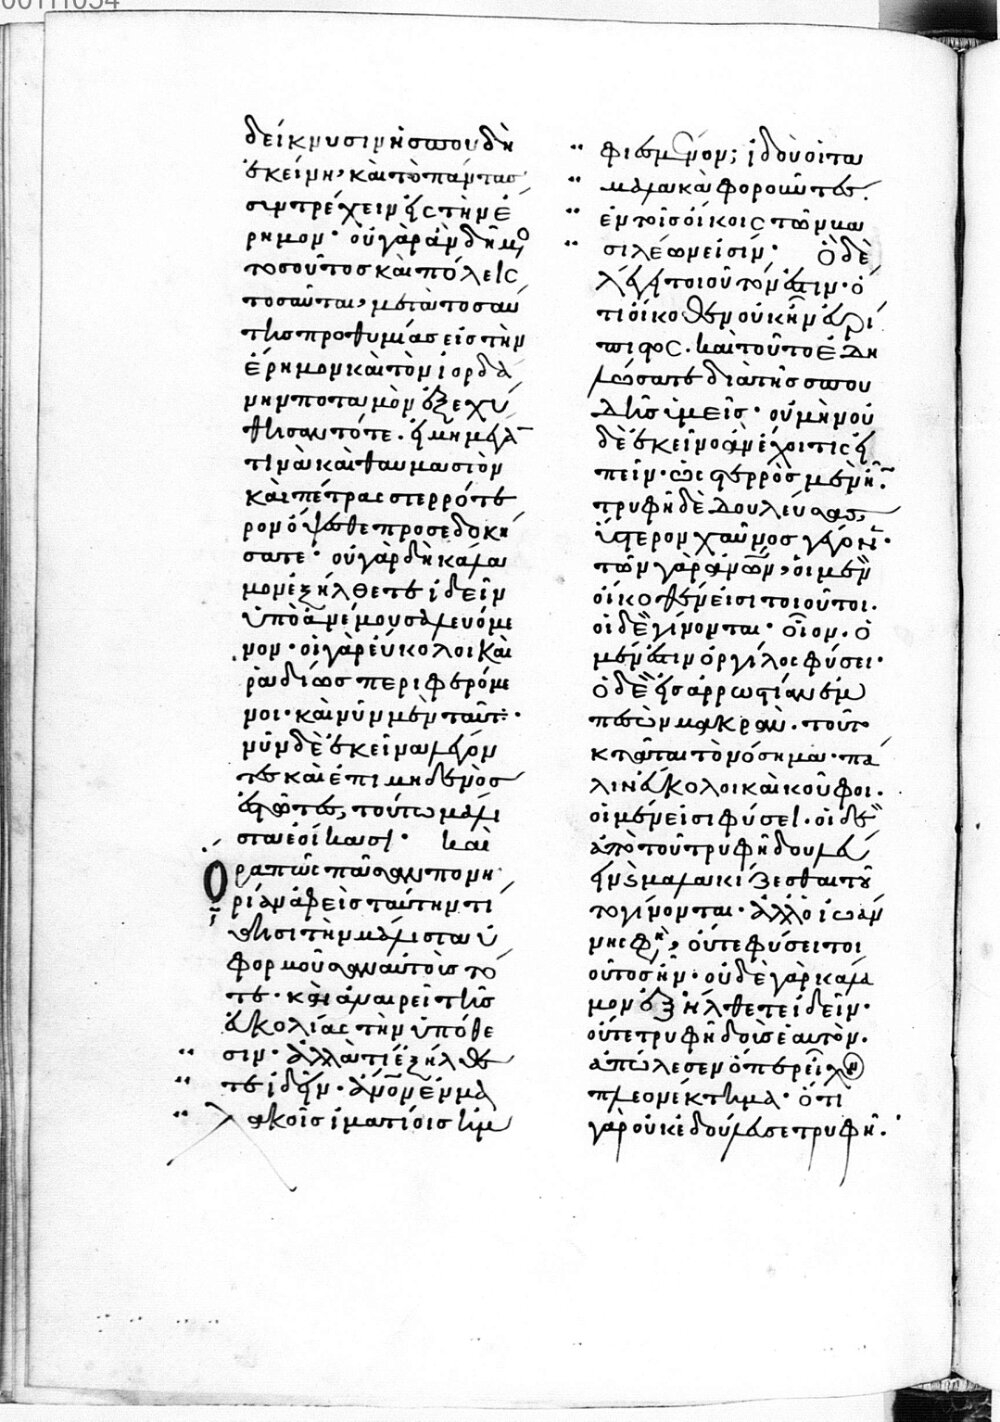 δείκνυσιν ἡ σπουδὴ
ἐκείνη, καὶ τὸ πάντας
συντρέχειν εἰς τὴν ἔ
ρημον· οὐ γὰρ ἂν δῆμο
τοσοῦτος καὶ πόλεις
τοσαῦται, μετὰ τοσαύ
της προθυμίας εἰς τὴν
ἔρημον καὶ τὸν ἰορδά
νην ποταμὸν ἐξεχύ
θησαν τότε. εἰ μὴ μέγά
τινὰ καὶ θαυμαστὸν
καὶ πέτρας στερρότε
ρον ὄψεσθε προσεδοκή
σατε· οὐ γὰρ δὴ κάλα
μον ἐξήλθετε ἰδεῖν
ὑπὸ ἀνέμου σαλευόμε
νον· οἱ γὰρ εὔκολοι καὶ
ῥαδίως περιφερόμε
νοι· καὶ νῦν μὲν ταῦτ·
νῦν δὲ ἐκεῖνα λέγον
τες καὶ ἐπὶ μηδενὸς
ἑστῶτες, τούτω μάλι
στα ἐοίκασι· καὶ
ὅρα πῶς πᾶσαν πονη
ρίαν ἀφεὶς ταύτην τί
θησι τὴν μάλιστα ὑ
φορμοῦσαν αὐτοῖς τό
τε· καὶ ἀναιρεῖ τῆς
εὐκολίας τὴν ὑπόθε
σιν· ἀλλὰ τί ἐξήλθε
τε ἰδεῖν· ἄνον ἐν μα
λακοῖς ἱματίοις ἠμ
φιεσμένον; ἰδοὺ οἱ τὰ
μαλακὰ φοροῦντες
ἐν τοῖς οἴκοις τῶν βα
σιλέων εἰσίν· Ὃ δὲ
λέγει τοιοῦτόν ἐστιν· ὅ
τι οἴκοθεν οὐκ ἦν εὐρί
πιστος. καὶ τοῦτο ἐδη
λώσατε διὰ τῆς σπου
δῆς ὑμεῖς· οὐ μὴν οὐ
δὲ ἐκεῖνο ἂν ἔχοι τις εἰ
πεῖν· ὡς στερρὸς μὲν ἦν·
τρυφῆ δὲ δουλεύσας,
ὕστερον χαῦνος γέγονε·
τῶν γὰρ ἀνων, οἱ μὲν
οἴκοθέν εἰσι τοιοῦτοι.
οἱ δὲ γίνονται· οἷον. ὁ
μέν ἐστιν ὀργίλος φύσει·
ὁ δὲ εἰς ἀρρωστίαν ἐμ
πεσὼν μακράν. τοῦτο
κτᾶται τὸ νόσημα· πά
λιν εὔκολοι καὶ κοῦφοι.
οἱ μέν εἰσι φύσει. οἱ δὲ
ἀπὸ τοῦ τρυφῆ δουλεύ
ειν καὶ μαλακίζεσθαι τοῦ
το γίνονται· ἀλλ' ὁ ἰωάν
νης φη, οὔτε φύσει τοι
οῦτος ἦν· οὐδὲ γὰρ κάλα
μον ἐξήλθετε ἰδεῖν·
οὔτε τρυφῆ δοὺς ἑαυτὸν.
ἀπώλεσεν ὅπερ εἶχεν
πλεονέκτημα· ὅτι
γὰρ οὐκ ἐδούλευσε τρυφῆ.